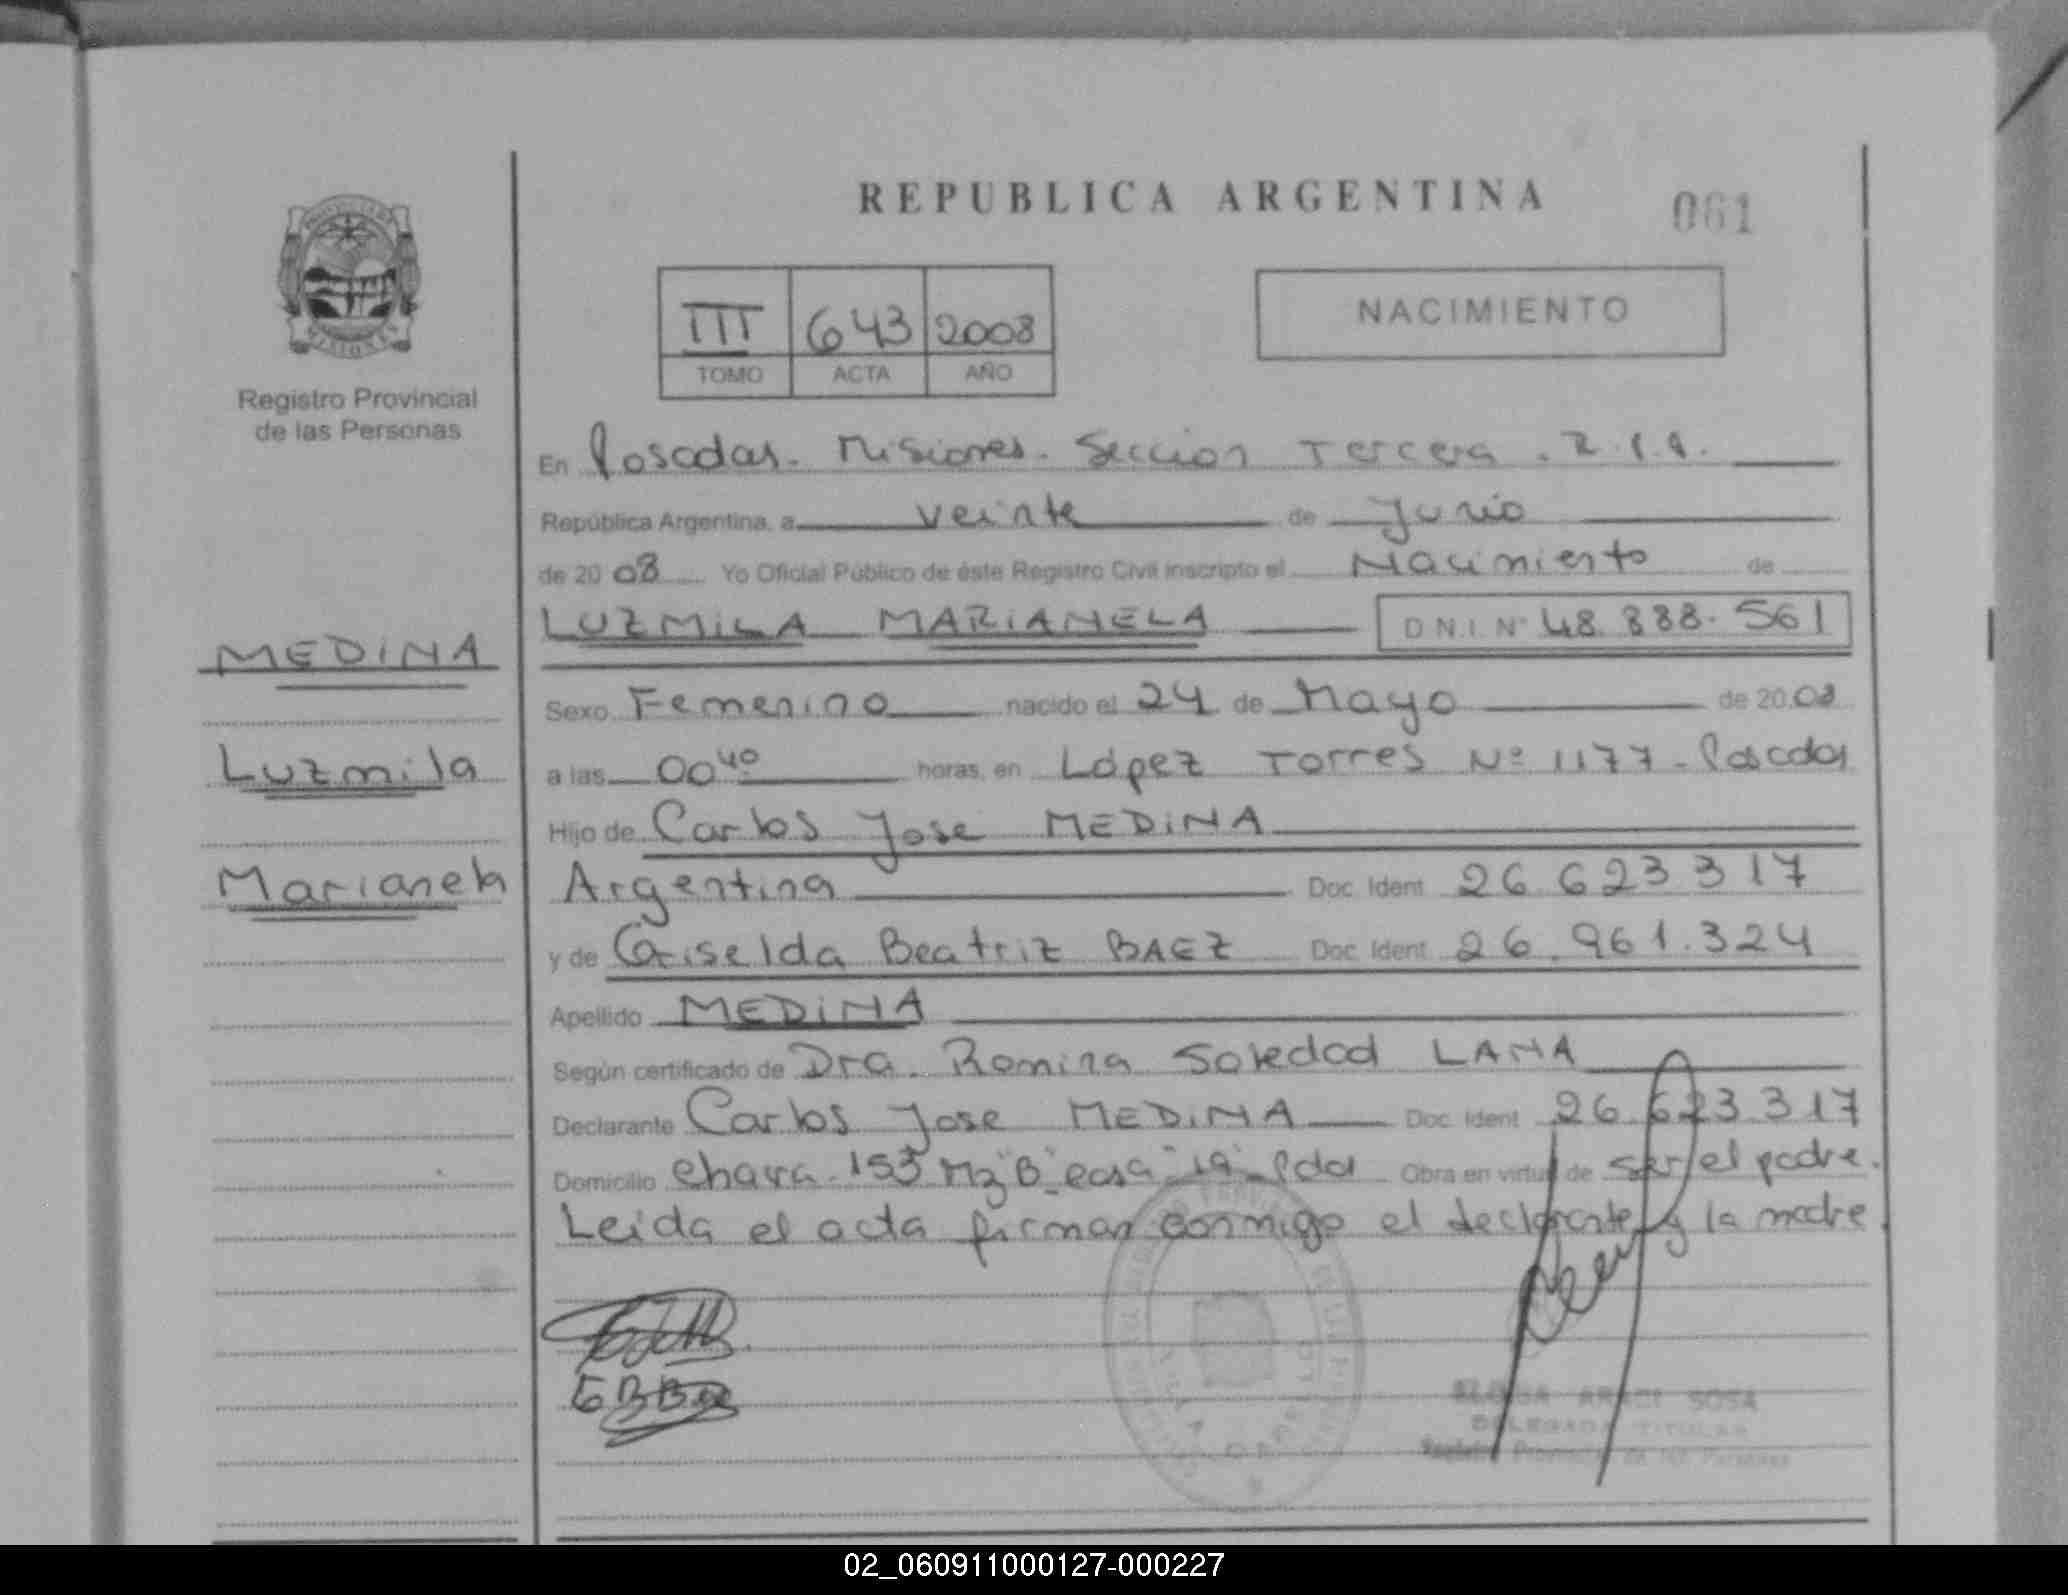 REPUBLICA ARGENTINA
061
III 643 2008
TOMO ACTA AÑO
NACIMIENTO
MISIONES
Registro Provincial
de las Personas
En Posadas. Misiones. Seccion Tercera.
República Argentina, a veinte de Junio
de 2008 Yo Oficial Público de éste Registro Civil inscripto el Nacimiento de
LUZMILA MARIANELA D.N.I. Nº 48.888.561
MEDINA
Luzmila
Marianela
Sexo Femenino nacido el 24 de Mayo de 2008
a las 00 40 horas, en López Torres Nº 1177 - Posadas
Hijo de Carlos Jose MEDINA
Argentina Doc. Ident. 26.623.317
y de Griselda Beatriz BAEZ Doc. Ident. 26.961.324
Apellido MEDINA
Según certificado de Dra. Romina Soledad LANA
Declarante Carlos Jose MEDINA Doc. Ident. 26.623.317
Domicilio Chacra 153 Mz "B" casa "19" Pdas Obra en virtud de ser el padre.
Leida el acta firman conmigo el declarante y la madre
ARACI SOSA
DELEGADA TITULAR
Registro Provincial de las Personas
02_060911000127-000227